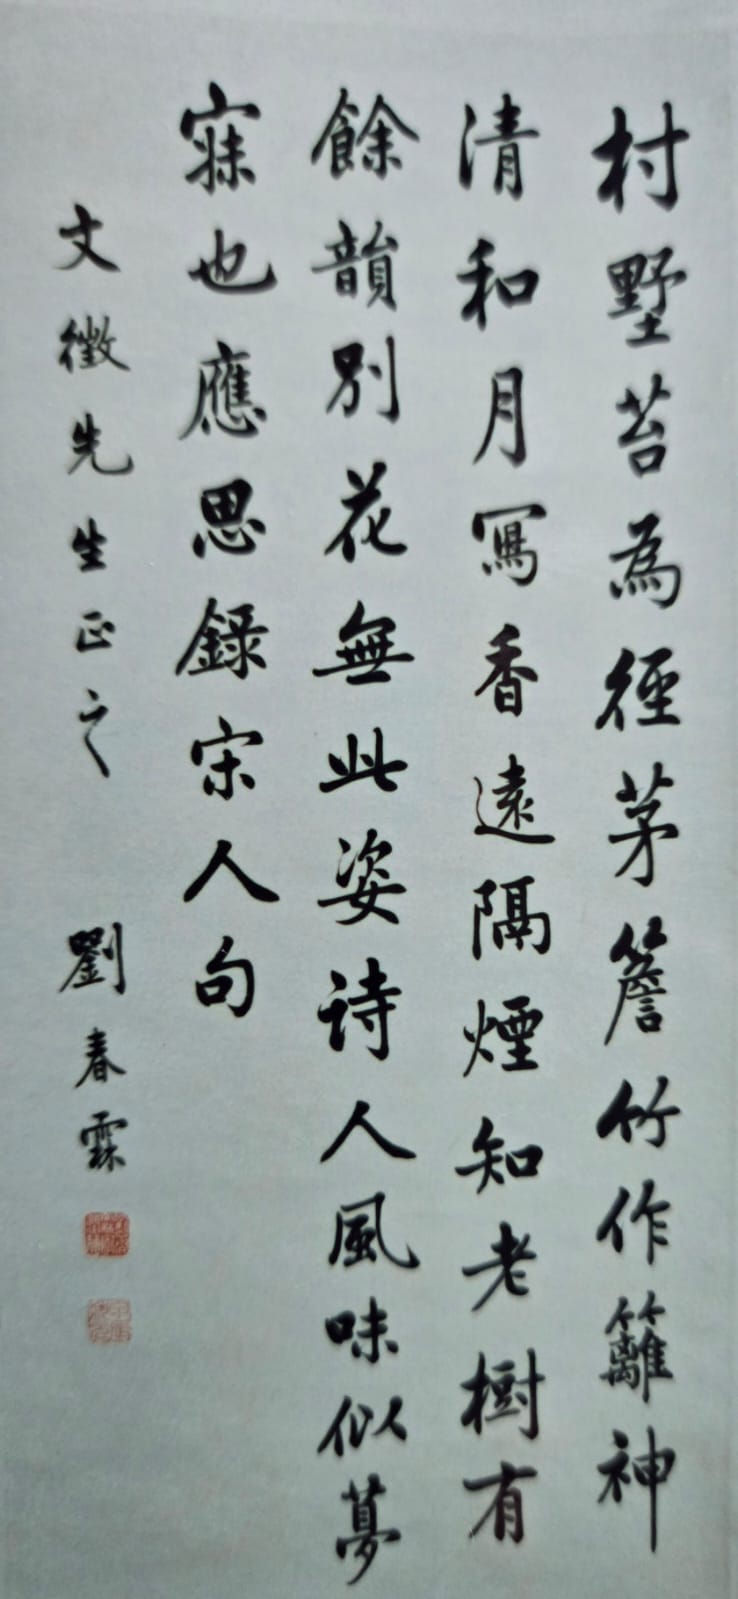 村墅苔為徑茅簷竹作籬神
清和月寫香遠隔煙知老樹有
餘韻別花無此姿詩人風味似夢
寐也應思錄宋人句
文徵先生正之
劉春霖